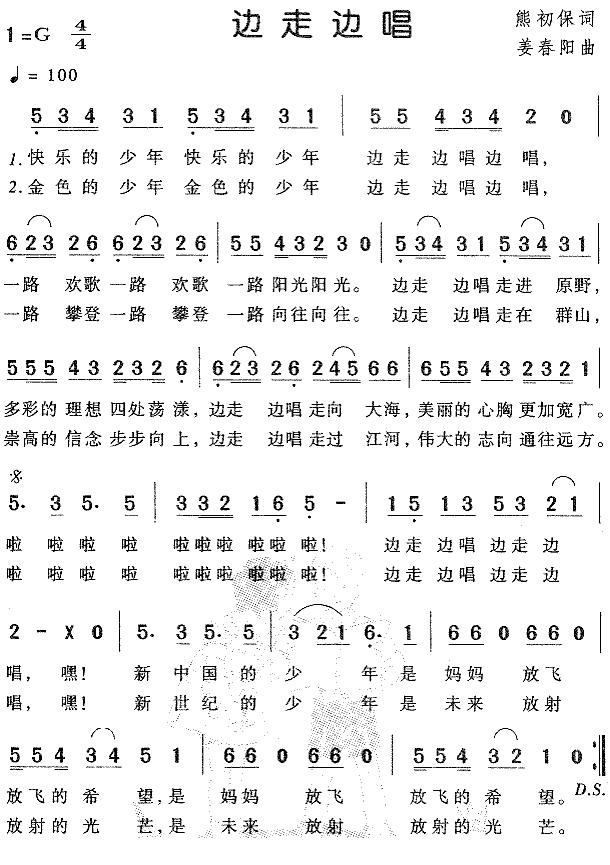 边走边唱
1=G 4/4
熊初保词
姜春阳曲
♩= 100
5 34 31 5 34 31 | 55 434 2 0 |
1.快乐的 少年 快乐的 少年 边走 边唱边 唱,
2.金色的 少年 金色的 少年 边走 边唱边 唱,
623 26 623 26 | 55 432 30 | 534 31 534 31 |
一路 欢歌一路 欢歌 一路 阳光阳光。 边走 边唱走进 原野,
一路 攀登一路 攀登 一路 向往向往。 边走 边唱走在 群山,
555 43 232 6 | 623 26 245 66 | 655 43 232 1 |
多彩的 理想 四处荡 漾,边走 边唱 走向 大海,美丽的 心胸 更加宽 广。
崇高的 信念 步步向 上,边走 边唱 走过 江河,伟大的 志向 通往远 方。
5· 3 5· 5 | 332 16 5 - | 15 13 53 21 |
啦 啦 啦 啦 啦啦啦 啦啦 啦! 边走 边唱 边走 边
啦 啦 啦 啦 啦啦啦 啦啦 啦! 边走 边唱 边走 边
2 - X 0 | 5· 35· 5 | 3 21 6· 1 | 660 660 |
唱, 嘿! 新 中国 的 少 年 是 妈妈 放飞
唱, 嘿! 新 世纪 的 少 年 是 未来 放射
554 34 5 1 | 660 660 | 554 32 1 0 :‖
放飞的 希 望,是 妈妈 放飞 放飞的 希 望。 D.S.
放射的 光 芒,是 未来 放射 放射的 光 芒。